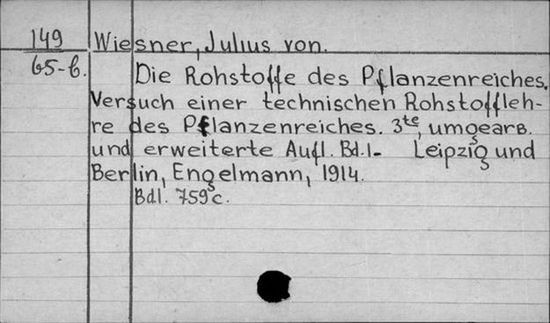 149 Wiesner, Julius von.
65-b.
Die Rohstoffe des Pflanzenreiches.
Versuch einer technischen Rohstoffleh-
re des Pflanzenreiches. 3te, umgearb.
und erweiterte Aufl. Bd.1- Leipzig und
Berlin, Engelmann, 1914.
Bd1. 759 c.